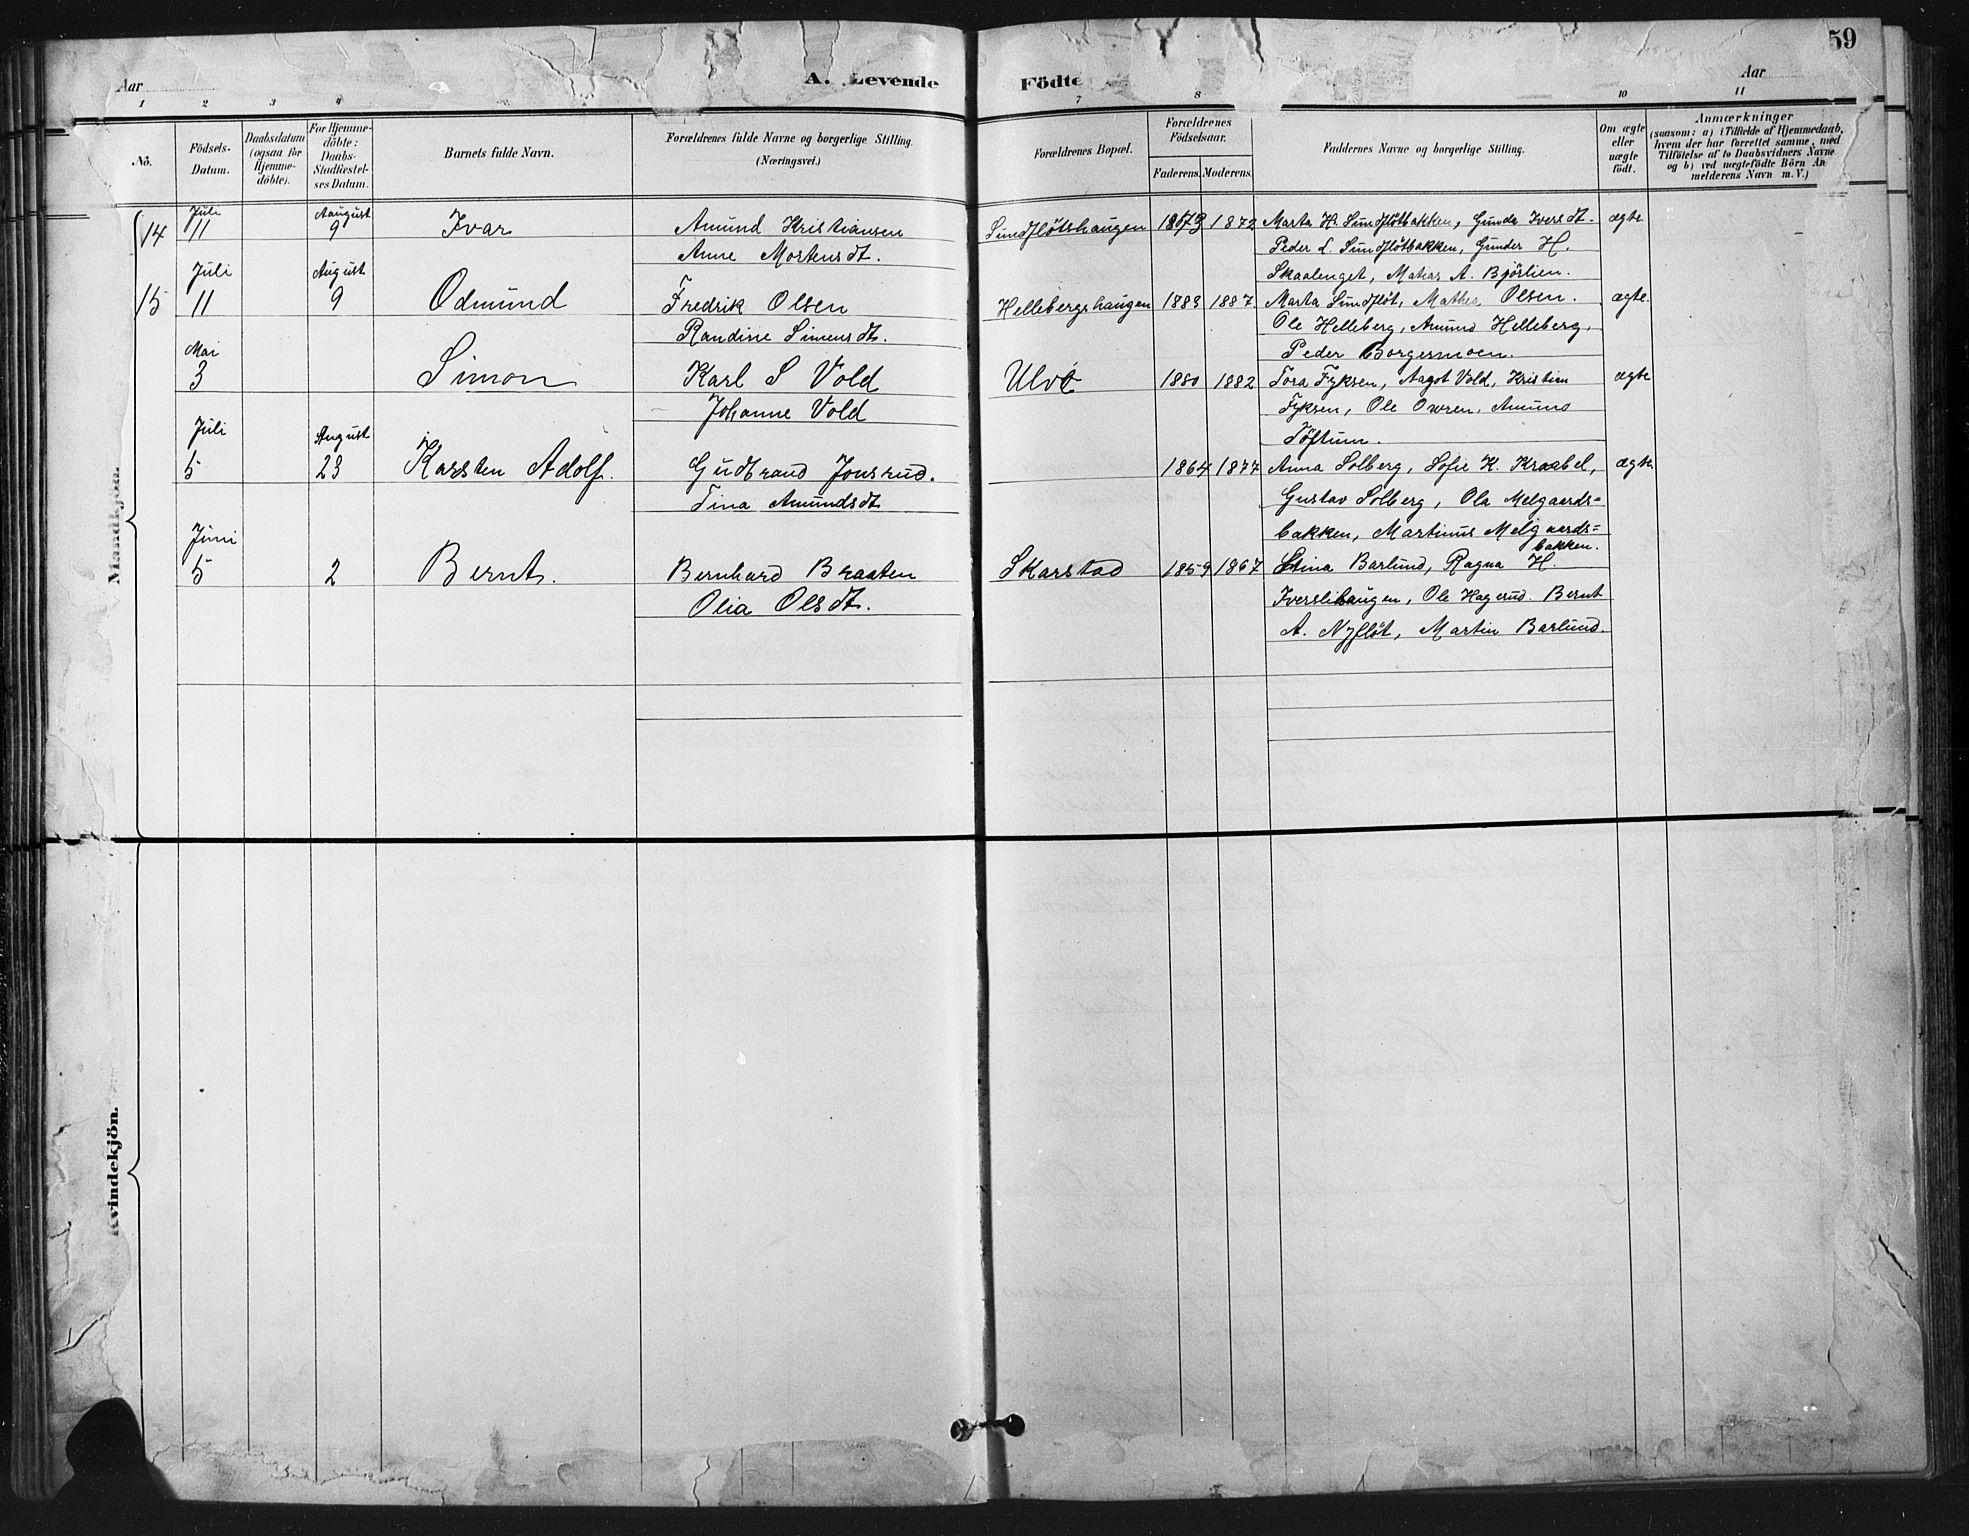 59
Aar A. Levende Fødte Aar
1 2 3 4 7 8 10 11
No.
Födsels-Datum.
Daabsdatum (ogsaa for Hjemme-döbte).
For Hjemme-döbte: Daabs-Stadfæstel-ses Datum.
Barnets fulde Navn.
Forældrenes fulde Navne og borgerlige Stilling. (Næringsvei.)
Forældrenes Bopæl.
Forældrenes Födselsaar.
Faderens. Moderens.
Faddernes Navne og borgerlige Stilling.
Om ægte eller uægte födt.
Anmærkninger
(saasom: a) i Tilfælde af Hjemmedaab,
hvem der har forrettet samme, med
Tilföielse af to Daabsvidners Navne
og b) ved uægtefödte Börn An-
melderens Navn m. V.)
Mandkjön.
14 Juli 11 August 9 Ivar Amund Kristiansen Sundflötshaugen 1873 1872 Marta H. Sundflötbakken, Gunda Iversdt. ægte
Anne Mortensdt. Peder L. Sundflötbakken, Gunder H.
Skaalenget, Matias A. Björlien.
15 Juli 11 August 9 Odmund Fredrik Olsen Hellebergshaugen 1883 1887 Marta Sundflöt, Mathea Olsen. ægte
Randine Simensdt. Ole Helleberg, Amund Helleberg,
Peder Borgermoen.
Mai 3 Simon Karl S Vold Ulvö 1880 1882 Tora Fyksen, Aagot Vold, Kristian ægte
Johanne Vold Fyksen, Ole Owren, Amund
Töftum.
Juli 5 August 23 Karsten Adolf. Gudbrand Jonsrud. 1864 1877 Anna Solberg, Sofie K. Kraabel, ægte
Tina Amundsdt Gustav Solberg, Ola Melgaards=
bakken, Martinus Melgaards=
bakken.
Juni 5 2 Bernt. Bernhard Braaten Skarstad 1859 1867 Stina Barlund, Ragna H.
Olia Olsdt. Iverslihaugen, Ole Hagerud. Bernt
A. Nyflöt, Martin Barlund.
Kvindekjön.